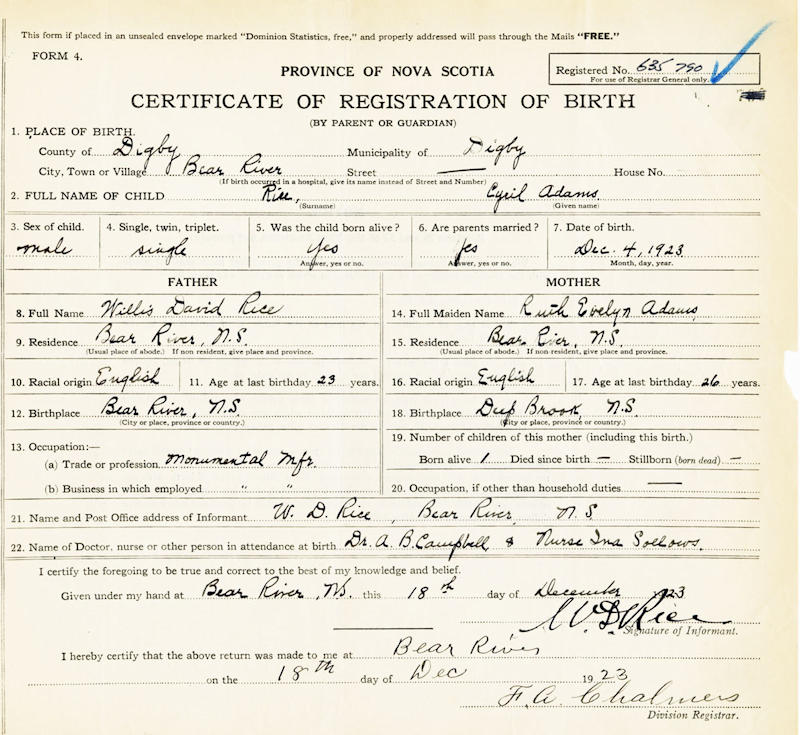 This form if placed in an unsealed envelope marked "Dominion Statistics, free," and properly addressed will pass through the Mails "FREE."
FORM 4.
Registered No. 635 790
For use of Registrar General only.
PROVINCE OF NOVA SCOTIA
CERTIFICATE OF REGISTRATION OF BIRTH
(BY PARENT OR GUARDIAN)
1. PLACE OF BIRTH.
County of Digby Municipality of Digby
City, Town or Village Bear River Street — House No.
(If birth occurred in a hospital, give its name instead of Street and Number)
2. FULL NAME OF CHILD Rice, Cyril Adams
(Surname) (Given name)
3. Sex of child. 4. Single, twin, triplet. 5. Was the child born alive? 6. Are parents married? 7. Date of birth.
male single yes yes Dec. 4, 1923
Answer, yes or no. Answer, yes or no. Month, day, year.
FATHER
8. Full Name Willis David Rice
9. Residence Bear River, N.S.
(Usual place of abode.) If non resident, give place and province.
10. Racial origin English 11. Age at last birthday 23 years.
12. Birthplace Bear River, N.S.
(City or place, province or country.)
13. Occupation:—
(a) Trade or profession Monumental Mfr.
(b) Business in which employed " "
MOTHER
14. Full Maiden Name Ruth Evelyn Adams
15. Residence Bear River, N.S.
(Usual place of abode.) If non resident, give place and province.
16. Racial origin English 17. Age at last birthday 26 years.
18. Birthplace Deep Brook, N.S.
(City or place, province or country.)
19. Number of children of this mother (including this birth.)
Born alive 1 Died since birth — Stillborn (born dead) —
20. Occupation, if other than household duties —
21. Name and Post Office address of Informant W. D. Rice, Bear River, N.S.
22. Name of Doctor, nurse or other person in attendance at birth Dr. A. B. Campbell & Nurse Ina Sollows.
I certify the foregoing to be true and correct to the best of my knowledge and belief.
Given under my hand at Bear River, N.S. this 18th day of December 1923
W. D. Rice
Signature of Informant.
I hereby certify that the above return was made to me at Bear River
on the 18th day of Dec 1923
F. A. Chalmers
Division Registrar.